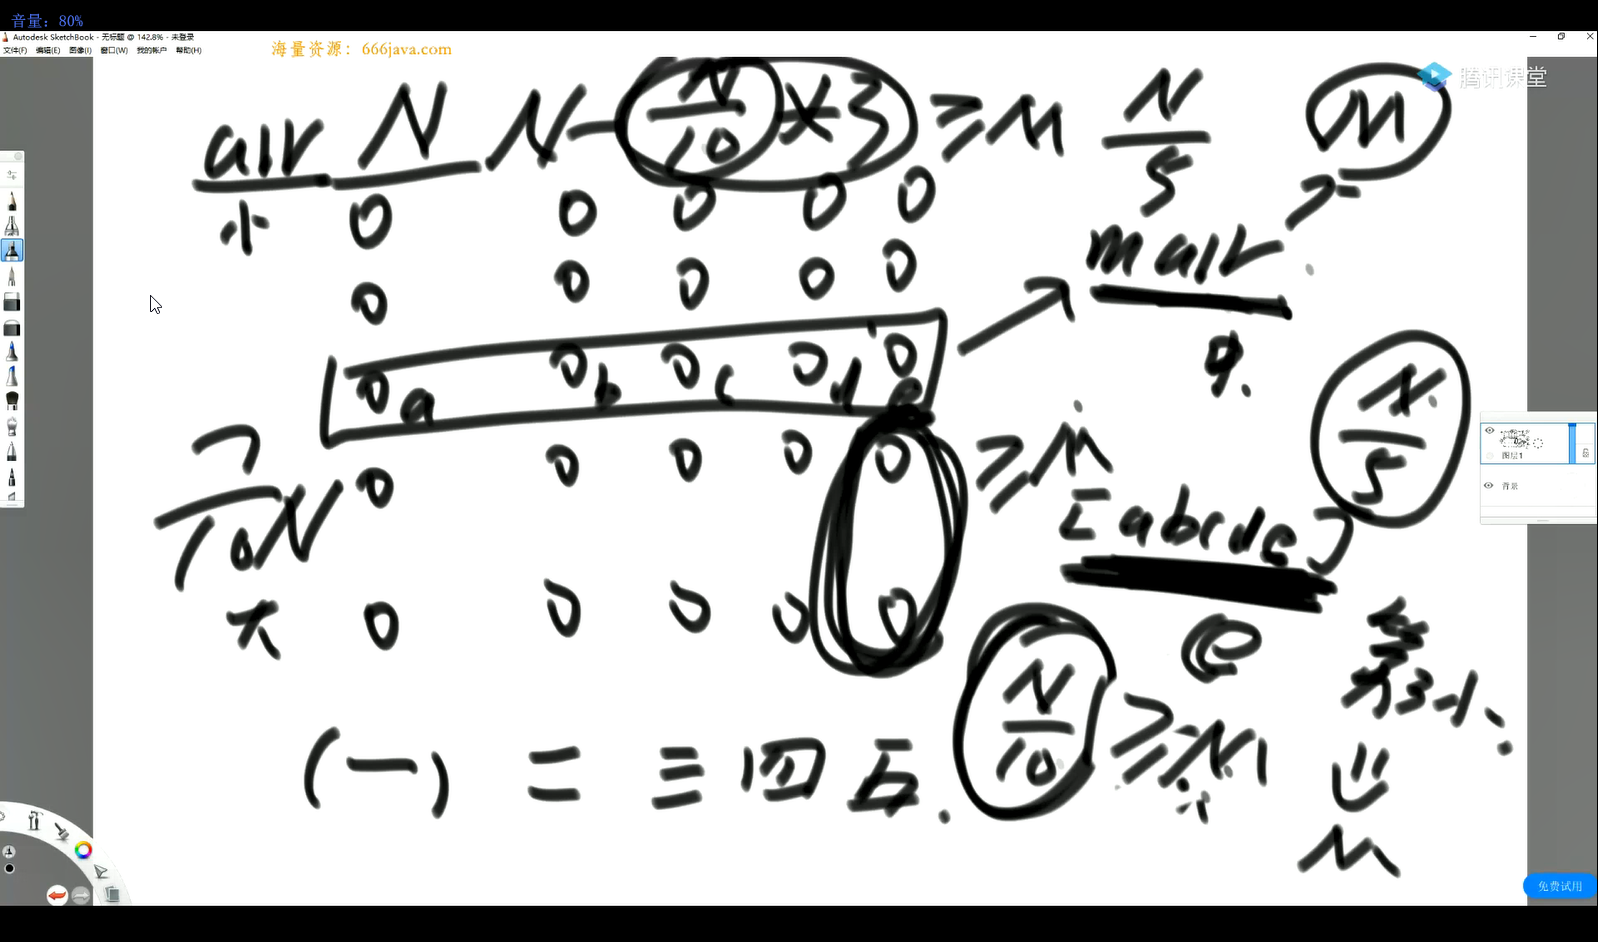 音量：80%
Autodesk SketchBook - 无标题 @ 142.8% - 未登录
文件(F) 编辑(E) 图像(I) 窗口(W) 我的帐户 帮助(H)
海量资源：666java.com
腾讯课堂
arr N N - N/10 * 3 ≥ M N/5 M
小 0 0 0 0 0
marr
0 0 0 0 0
0a 0b 0c 0d 0e
N/5
0 0 0 0 0 ≥ M
7/10 N
[abcde]
大 0 0 0 0 0
e
第3小
(一) 二 三 四 五 N/10 ≥ M
M
图层1
背景
免费试用